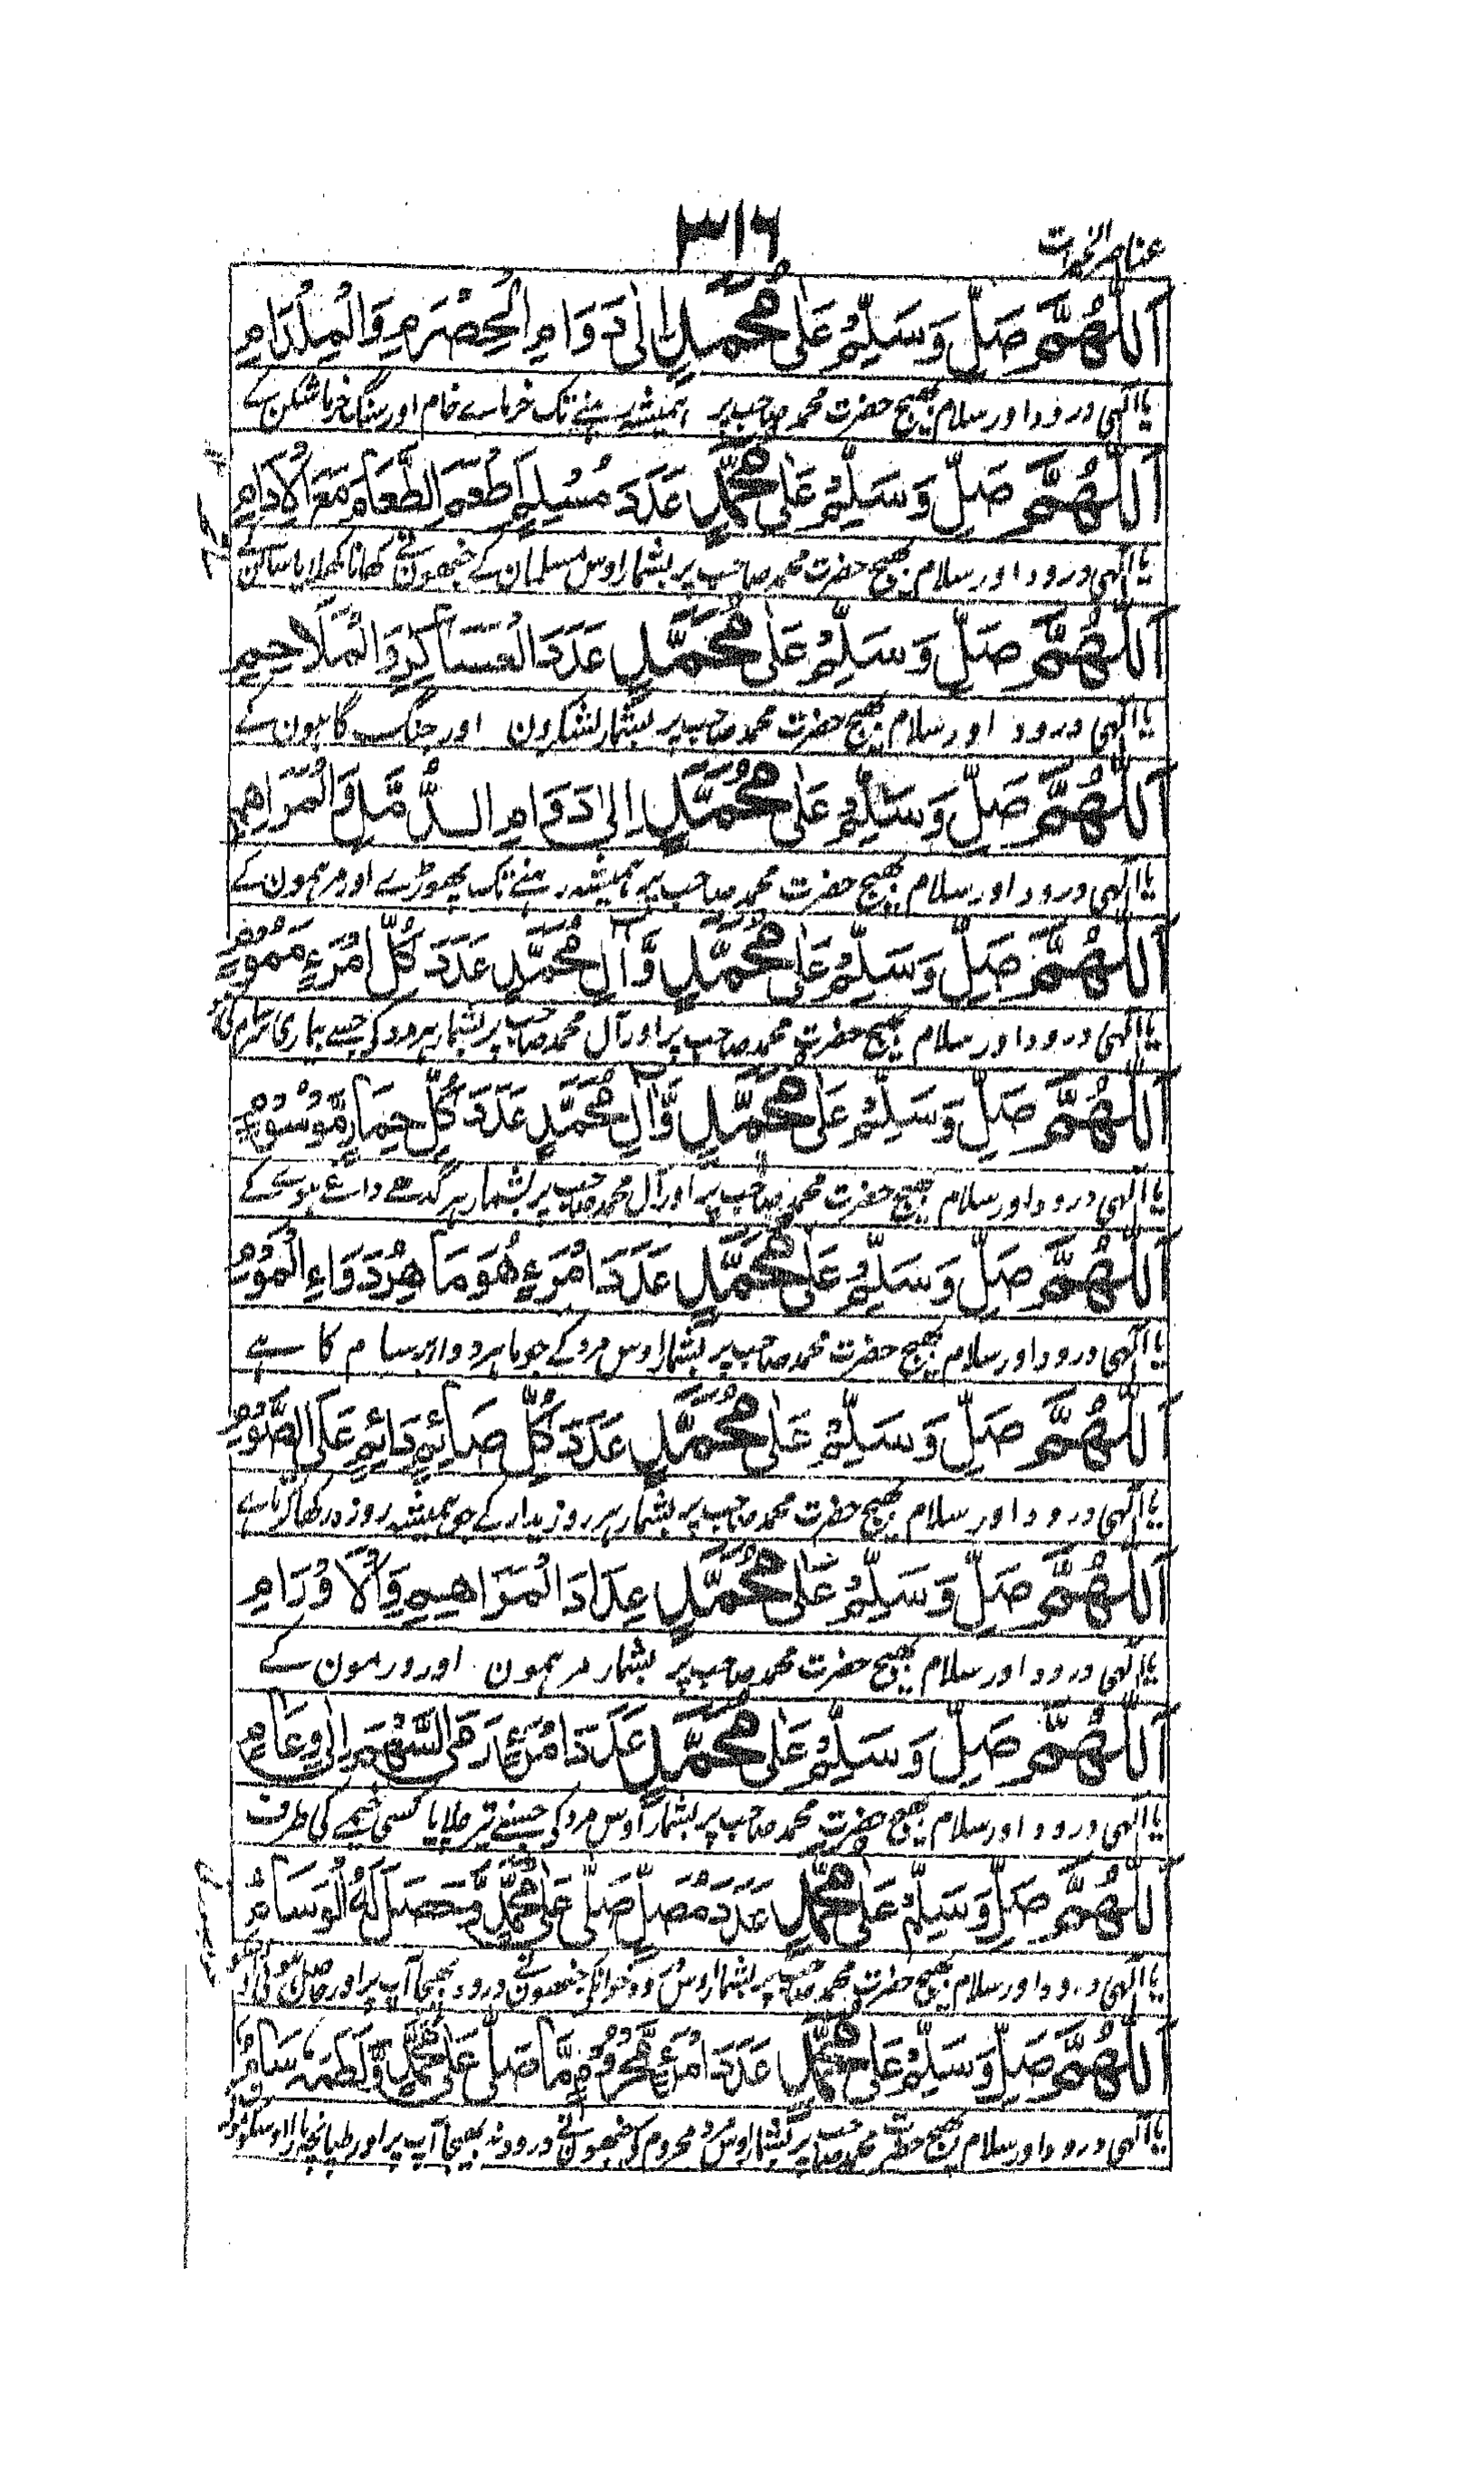 عناصر الخيرات
٣١٦
اَللّٰهُمَّ صَلِّ وَسَلِّمْ عَلٰى مُحَمَّدٍ اِلٰى دَوَامِ الْحِصْرَمِ وَالْمِلْدَامِ
یا الٰہی درود اور سلام بھیج حضرت محمد صاحب پر ہمیشہ رہنے تک خرماے خام اور سنگ خرما شکن کے
اَللّٰهُمَّ صَلِّ وَسَلِّمْ عَلٰى مُحَمَّدٍ عَدَدَ مُسْلِمٍ اَطْعَمَ الطَّعَامَ مَعَ الْاِدَامِ
یا الٰہی درود اور سلام بھیج حضرت محمد صاحب پر بشمار اوس مسلمان کے جنھون نے کھانا کھلایا سالن کے
اَللّٰهُمَّ صَلِّ وَسَلِّمْ عَلٰى مُحَمَّدٍ عَدَدَ الْعَسَاكِرِ وَالْمَلَاحِمِ
یا الٰہی درود اور سلام بھیج حضرت محمد صاحب پر بشمار لشکرون اور جنگ گاہون کے
اَللّٰهُمَّ صَلِّ وَسَلِّمْ عَلٰى مُحَمَّدٍ اِلٰى دَوَامِ الدُّمَّلِ وَالْمَرَاهِمِ
یا الٰہی درود اور سلام بھیج حضرت محمد صاحب پر ہمیشہ رہنے تک پھوڑے اور مرہمون کے
اَللّٰهُمَّ صَلِّ وَسَلِّمْ عَلٰى مُحَمَّدٍ وَّاٰلِ مُحَمَّدٍ عَدَدَ كُلِّ امْرَءٍ مَمُوْمٍ
یا الٰہی درود اور سلام بھیج حضرت محمد صاحب پر اور آل محمد صاحب پر بشمار ہر مرد کی جسے بیماری سرسام کی
اَللّٰهُمَّ صَلِّ وَسَلِّمْ عَلٰى مُحَمَّدٍ وَّاٰلِ مُحَمَّدٍ عَدَدَ كُلِّ حِمَارٍ مَّوْسُوْمٍ
یا الٰہی درود اور سلام بھیج حضرت محمد صاحب پر اور آل محمد صاحب پر بشمار ہر گدھے داغے ہوے کے
اَللّٰهُمَّ صَلِّ وَسَلِّمْ عَلٰى مُحَمَّدٍ عَدَدَ امْرَءٍ هُوَ مَاهِرُ دَوَاءِ الْمُوْمِ
یا الٰہی درود اور سلام بھیج حضرت محمد صاحب پر بشمار اوس مرد کے جو ماہر دواء برسام کا ہے
اَللّٰهُمَّ صَلِّ وَسَلِّمْ عَلٰى مُحَمَّدٍ عَدَدَ كُلِّ صَائِمٍ دَائِمٍ عَلَى الصَّوْمِ
یا الٰہی درود اور سلام بھیج حضرت محمد صاحب پر بشمار ہر روزیدار کے جو ہمیشہ روزہ رکھا کرتا ہے
اَللّٰهُمَّ صَلِّ وَسَلِّمْ عَلٰى مُحَمَّدٍ عِدَادَ الْمَرَاهِيْمِ وَالْاَوْرَامِ
یا الٰہی درود اور سلام بھیج حضرت محمد صاحب پر بشمار مرہمون اور ورمون کے
اَللّٰهُمَّ صَلِّ وَسَلِّمْ عَلٰى مُحَمَّدٍ عَدَدَ امْرَءٍ رَمَى السَّهْمَ اِلٰى وِعَامٍ
یا الٰہی درود اور سلام بھیج حضرت محمد صاحب پر بشمار اوس مرد کی جسنے تیر چلایا کسی خیمے کی طرف
اَللّٰهُمَّ صَلِّ وَسَلِّمْ عَلٰى مُحَمَّدٍ عَدَدَ مُصَلٍّ صَلّٰى عَلٰى مُحَمَّدٍ وَّحَصَلَ لَهُ الْوَسَامُ
یا الٰہی درود اور سلام بھیج حضرت محمد صاحب پر بشمار اوس درودخوانکی جنھون نے درود بھیجا آپ پر اور حاصل ہوئی
اَللّٰهُمَّ صَلِّ وَسَلِّمْ عَلٰى مُحَمَّدٍ عَدَدَ امْرَءٍ مَّحْرُوْمٍ مَّا صَلّٰى عَلٰى مُحَمَّدٍ وَّلَطَمَهٗ سَامٌ
یا الٰہی درود اور سلام بھیج حضرت محمد صاحب پر بشمار اوس مرد محروم کی جنھون نے درود نہ بھیجا آپ پر اور طپانچہ مارا اوسکو